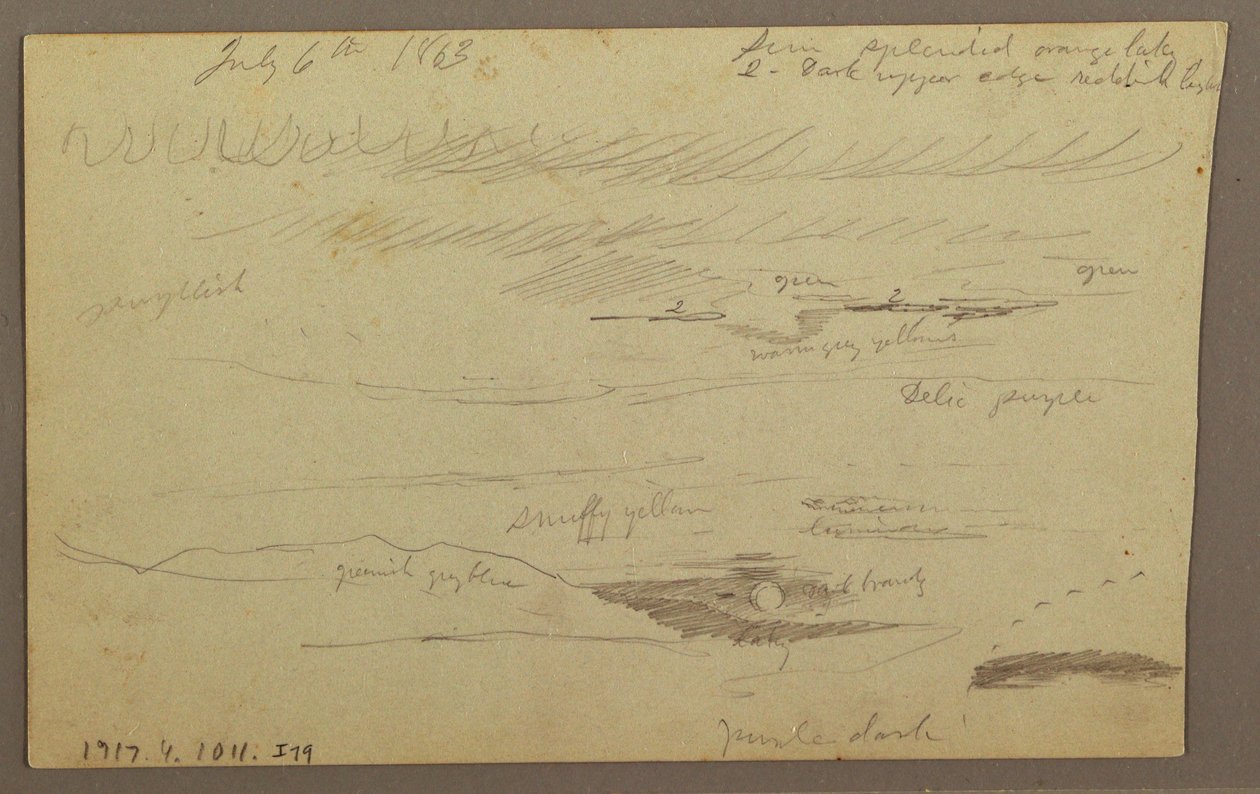 July 6th 1863
Sun splendid orange laky
2 - Dark upper edge reddish
green
green
2
2
warm grey yellows
Delic purple
snuffy yellow
luminous
greenish grey blue
laky
purple dark
1917.4.1011. I79